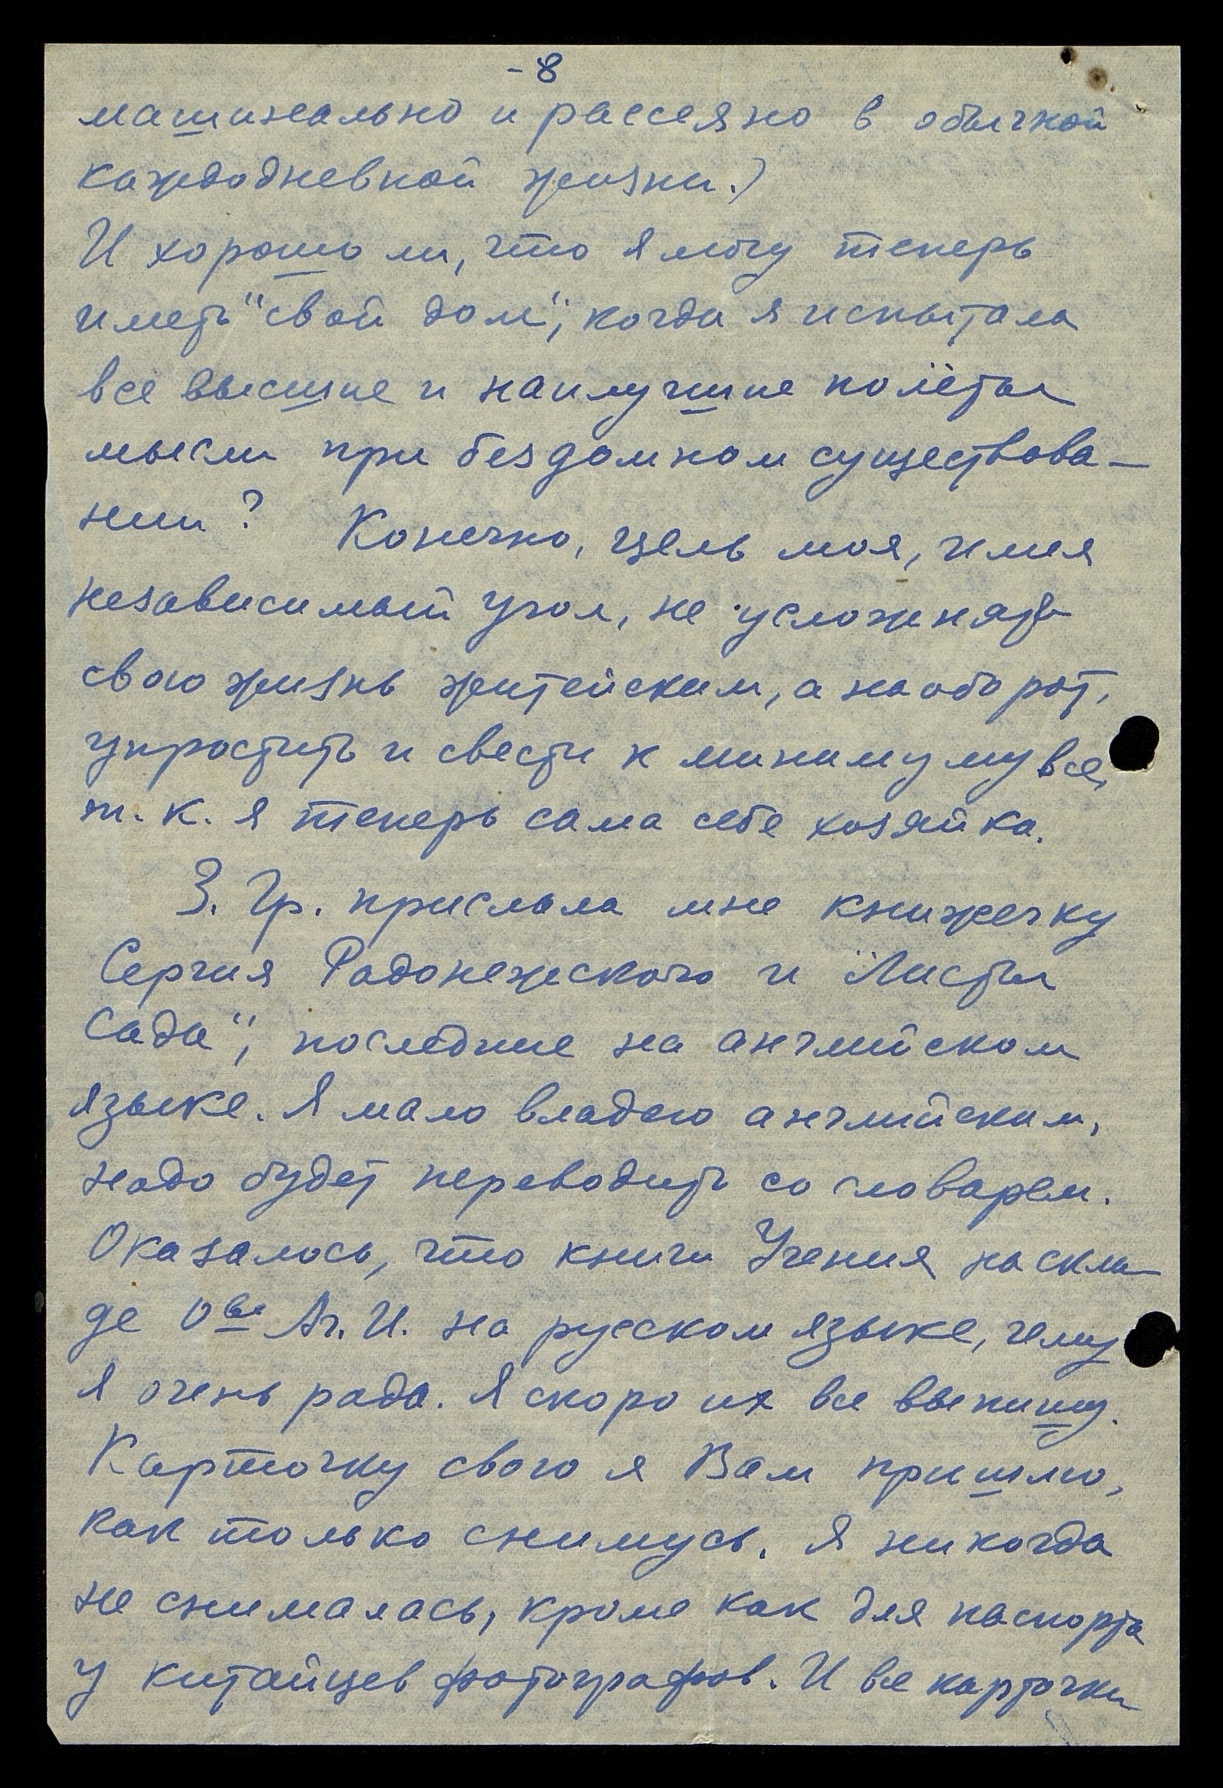 -8
машинально и рассеяно в обычной
каждодневной жизни.)
И хорошо ли, что я могу теперь
иметь "свой дом", когда я испытала
все высшие и наилучшие полёты
мысли при бездомном существова-
нии? Конечно, цель моя, имея
независимый угол, не усложнять
свою жизнь житейским, а наоборот,
упростить и свести к минимуму все,
т. к. я теперь сама себе хозяйка.
З. Гр. прислала мне книжечку
Сергия Радонежского и "Листы
Сада", последние на английском
языке. Я мало владею английским,
надо будет переводить со словарем.
Оказалось, что книги Учения на скла-
де О-ва Аг. И. на русском языке, чему
я очень рада. Я скоро их все выпишу.
Карточку свою я Вам пришлю,
как только снимусь. Я никогда
не снималась, кроме как для паспорта
у китайцев фотографов. И все карточки